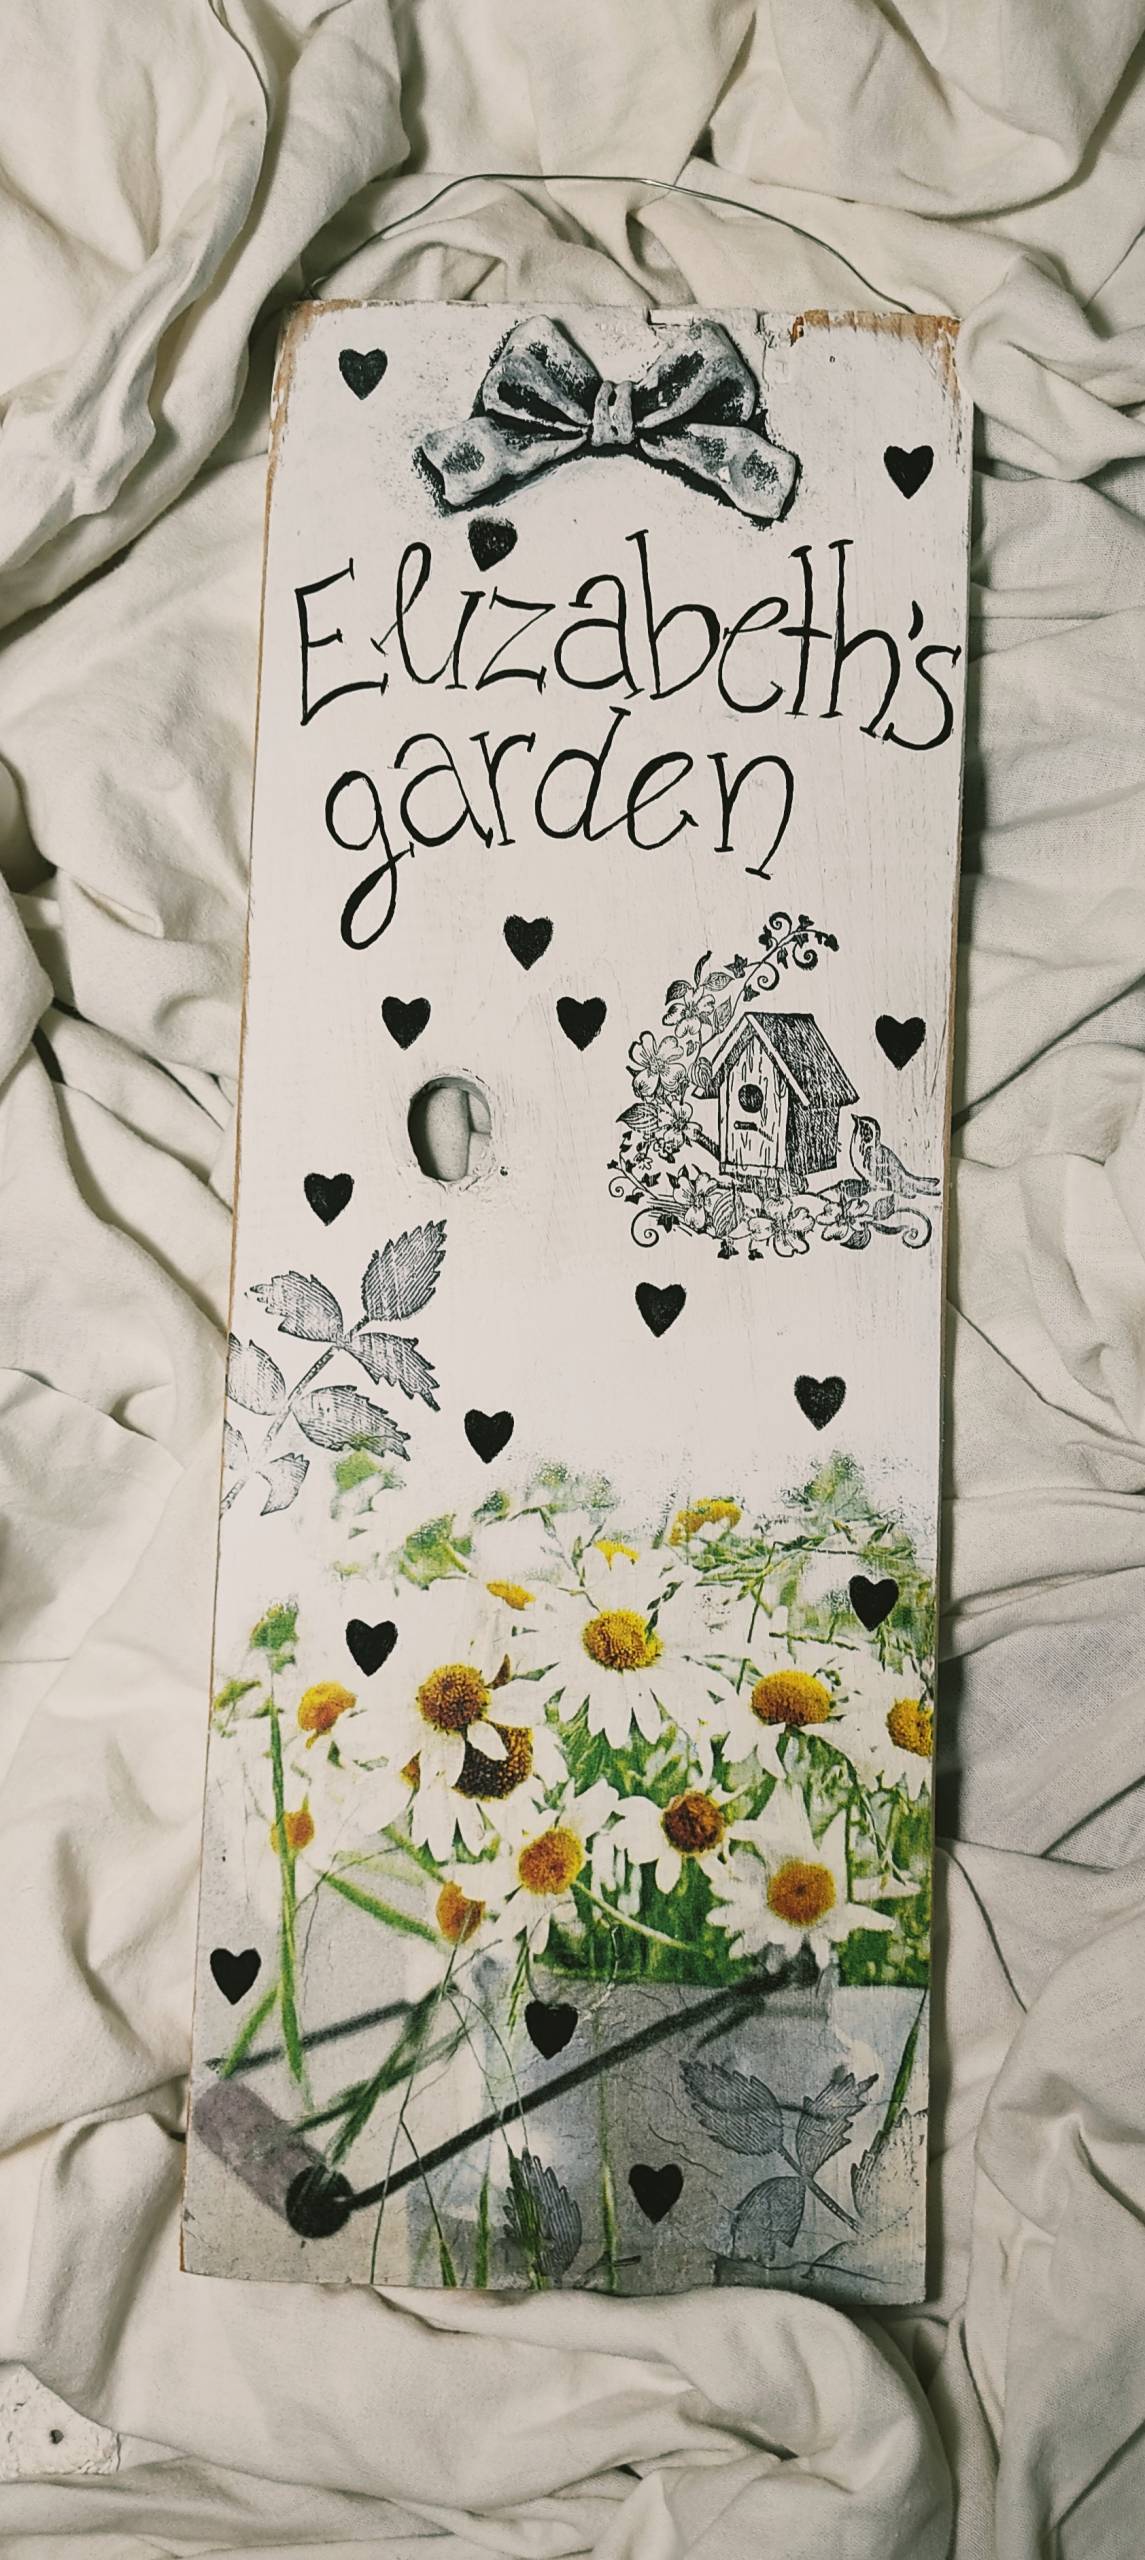 Elizabeth's
garden